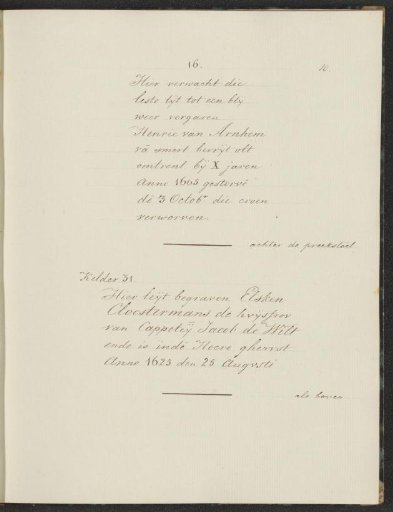 16.
10.
Hier verwacht die
leste tyt tot een bly
weer vergaren
Henric van Arnhem
vā
omtrent bij X jaren
Anno 1605 gestervē
dē 3 Octobr die croon
verworven.
achter de preekstoel
Kelder 31.
Hier leyt begraven Elsken
Cloostermans de huysfrov
van Jacob de Wilt
ende is indē Heere gherust
Anno 1623 den 25 Augusti
als boven